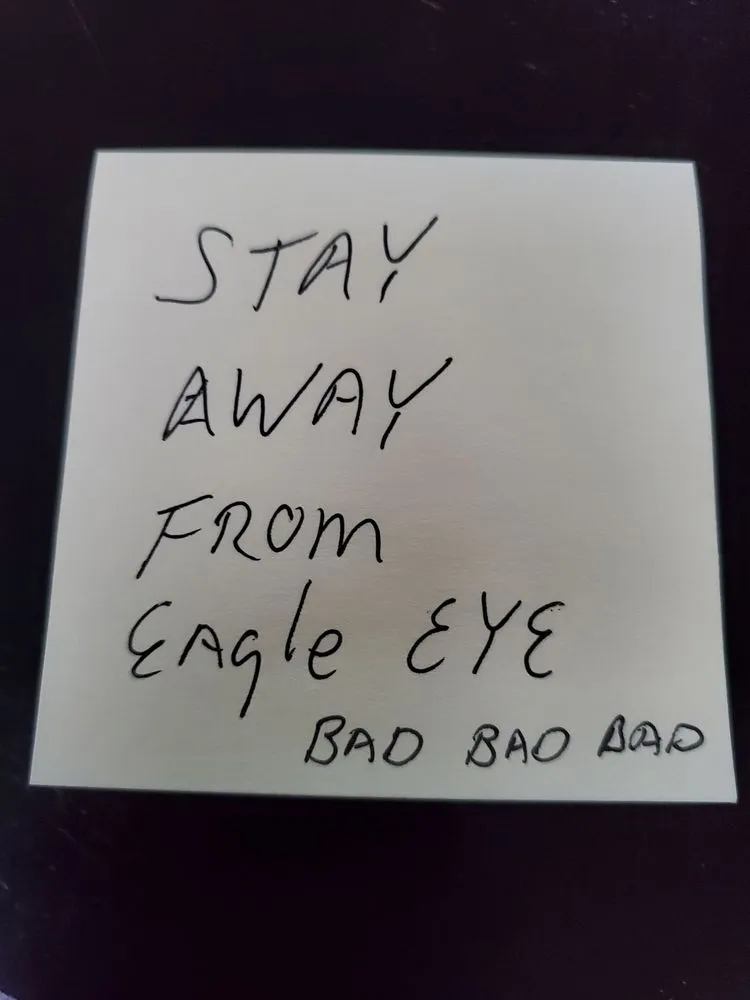 STAY
AWAY
FROM
EAgle EYE
BAD BAD BAD